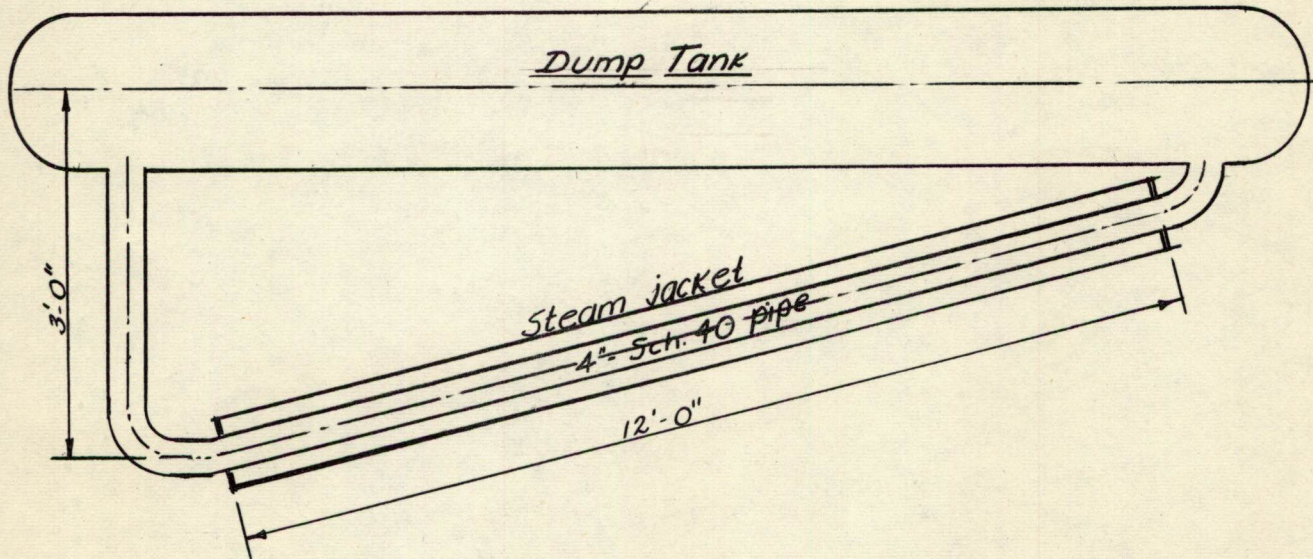 Dump Tank
3'-0"
Steam jacket
4"- Sch. 40 pipe
12'-0"